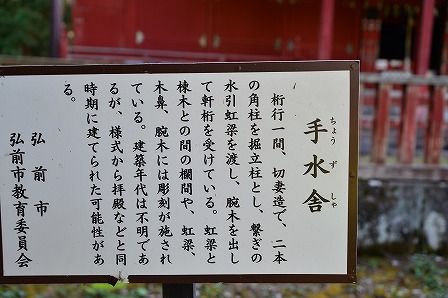 手水舎
ちょうずしゃ
桁行一間、切妻造で、二本
の角柱を掘立柱とし、繋ぎの
水引虹梁を渡し、腕木を出し
て軒桁を受けている。虹梁と
棟木との間の欄間や、虹梁、
木鼻、腕木には彫刻が施され
ている。建築年代は不明であ
るが、様式から拝殿などと同
時期に建てられた可能性があ
る。
弘前市
弘前市教育委員会